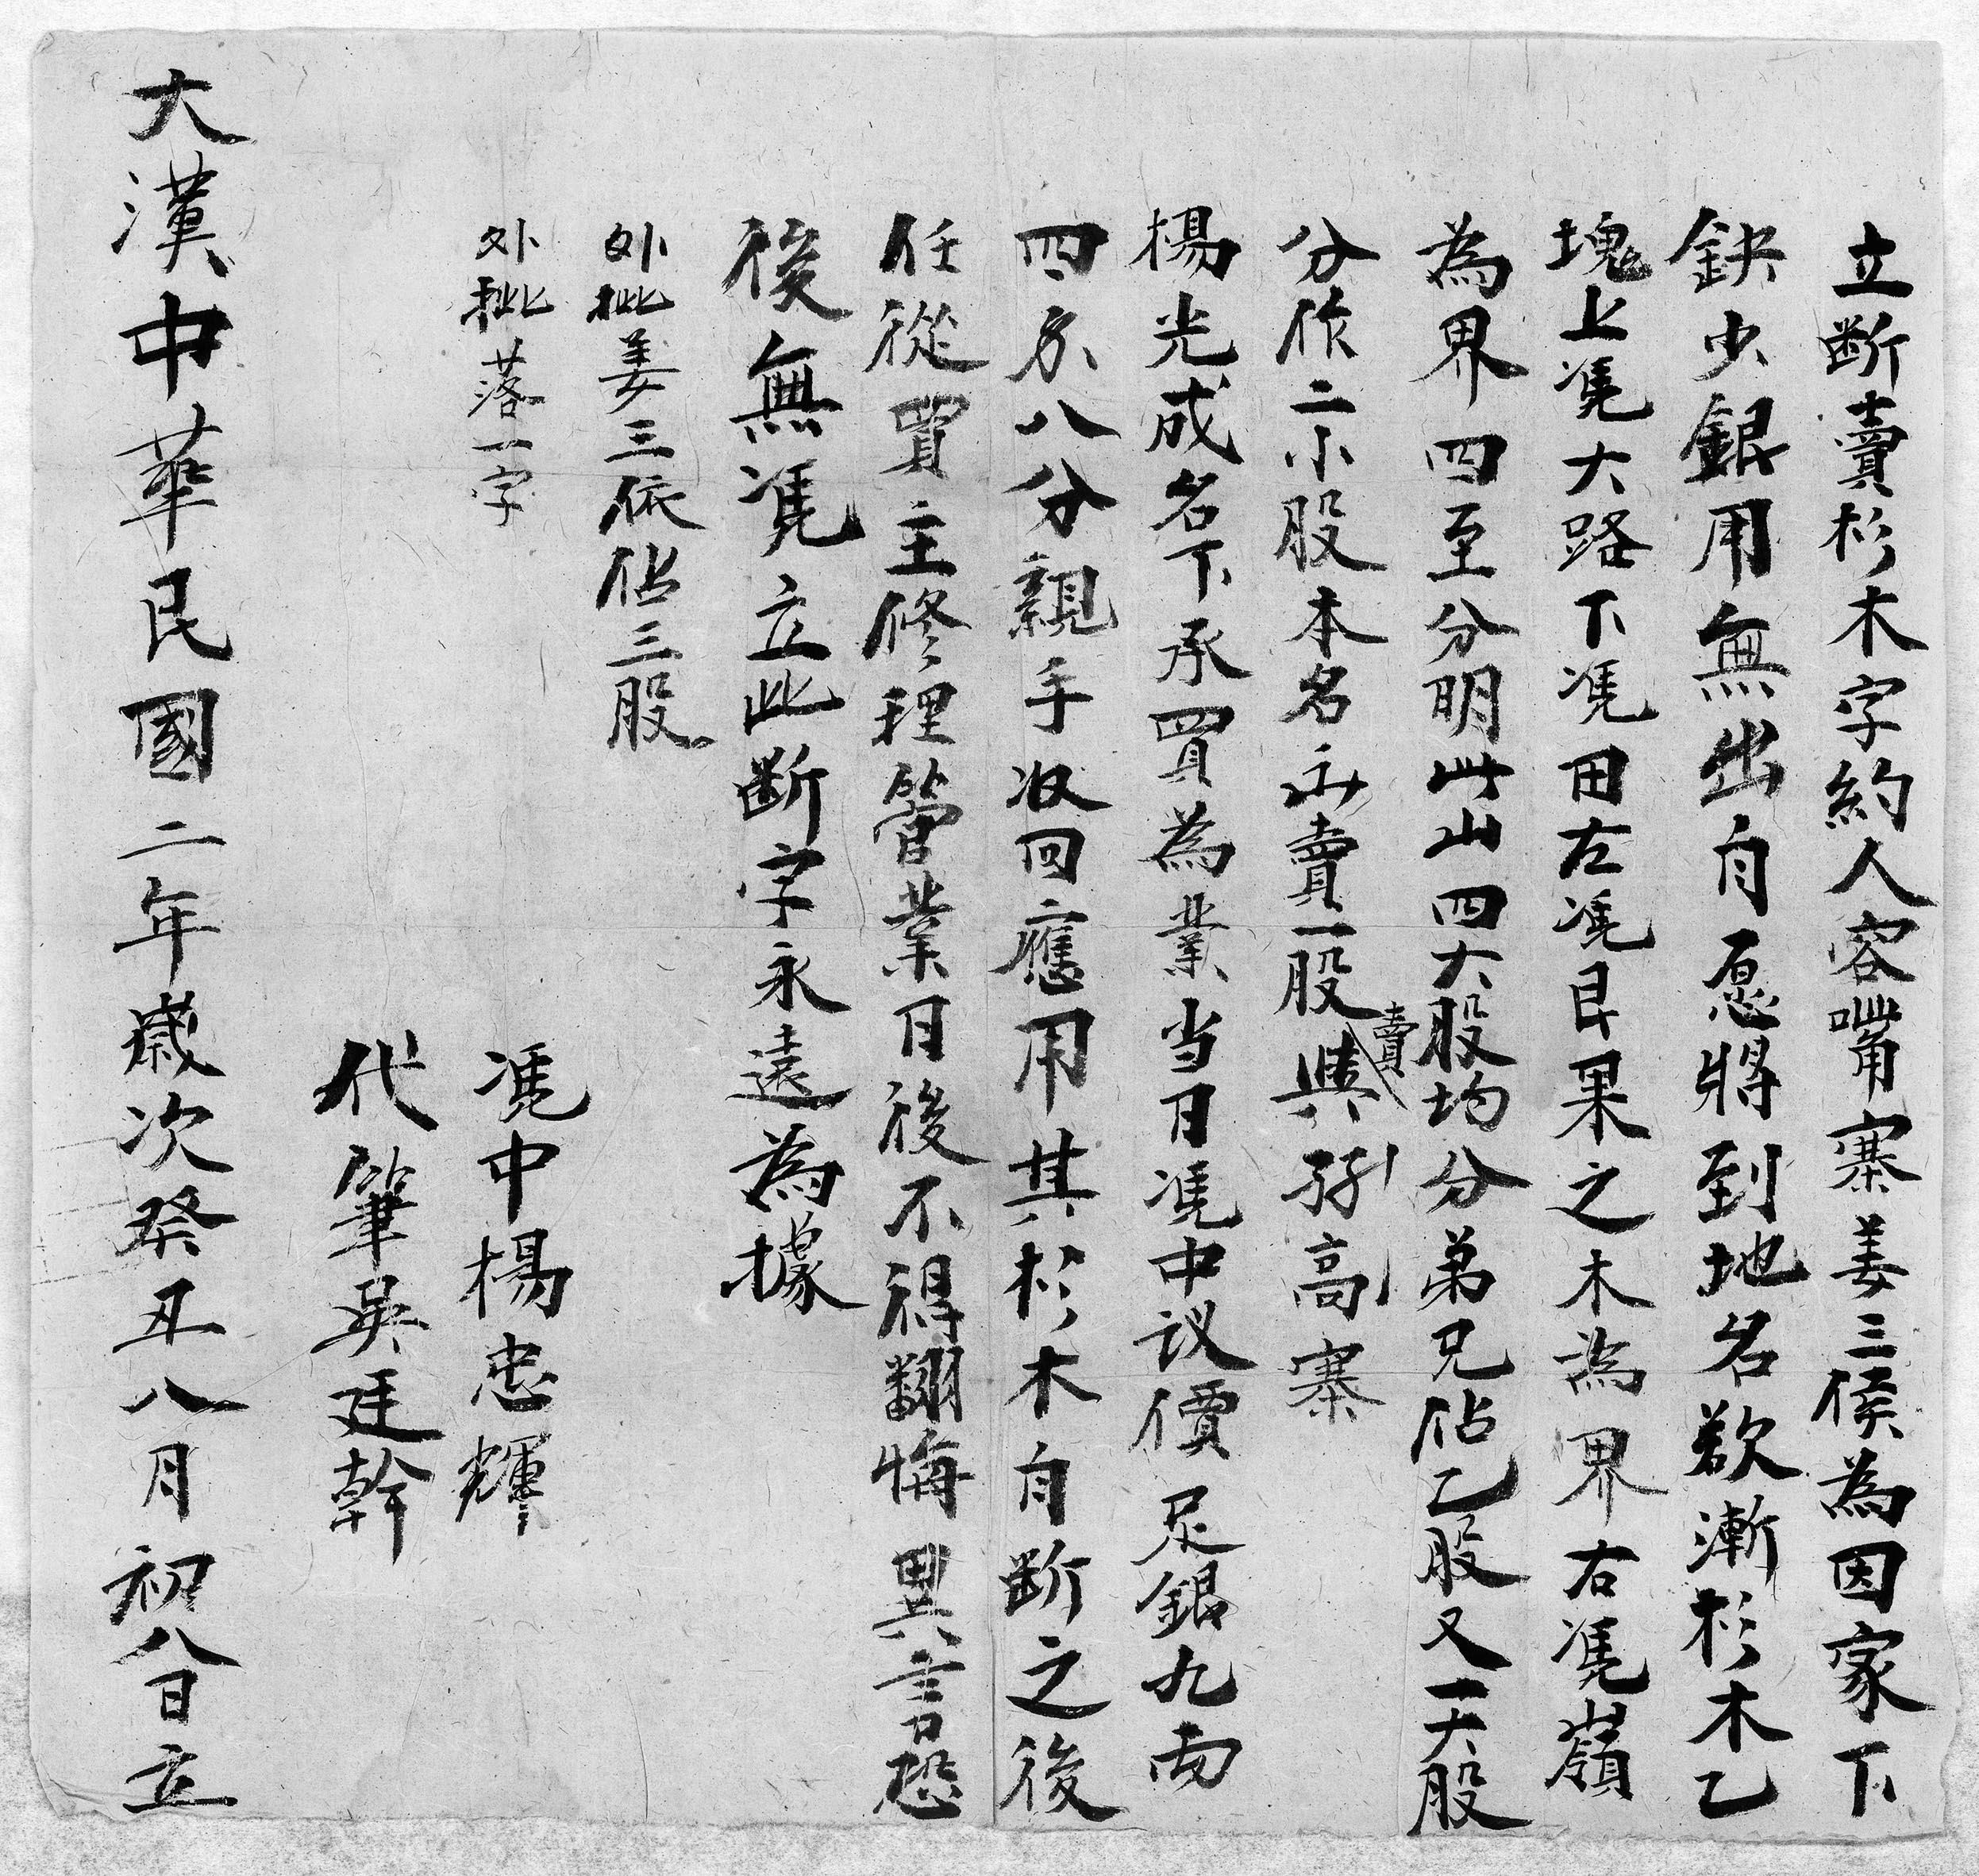 立断賣杉木字約人容嘴寨姜三侯為因家下
缺少銀用無出自愿將到地名歎漸杉木乙
塊上凴大路下凴田左凴艮果之木為界右凴嶺
為界四至分明此山四大股均分弟兄佔乙股又一大股
分作二小股本名永賣一股賣與孖高寨
楊光成名下承買為業当日凴中议價足銀九両
四分八分親手收回應用其杉木自断之後
任從買主修理管業日後不得翻悔異言恐
後無凴立此断字永遠為據
外批姜三依佔三股
外批落一字
凴中楊忠輝
代筆吳廷幹
大漢中華民國二年歲次癸丑八月初八日立